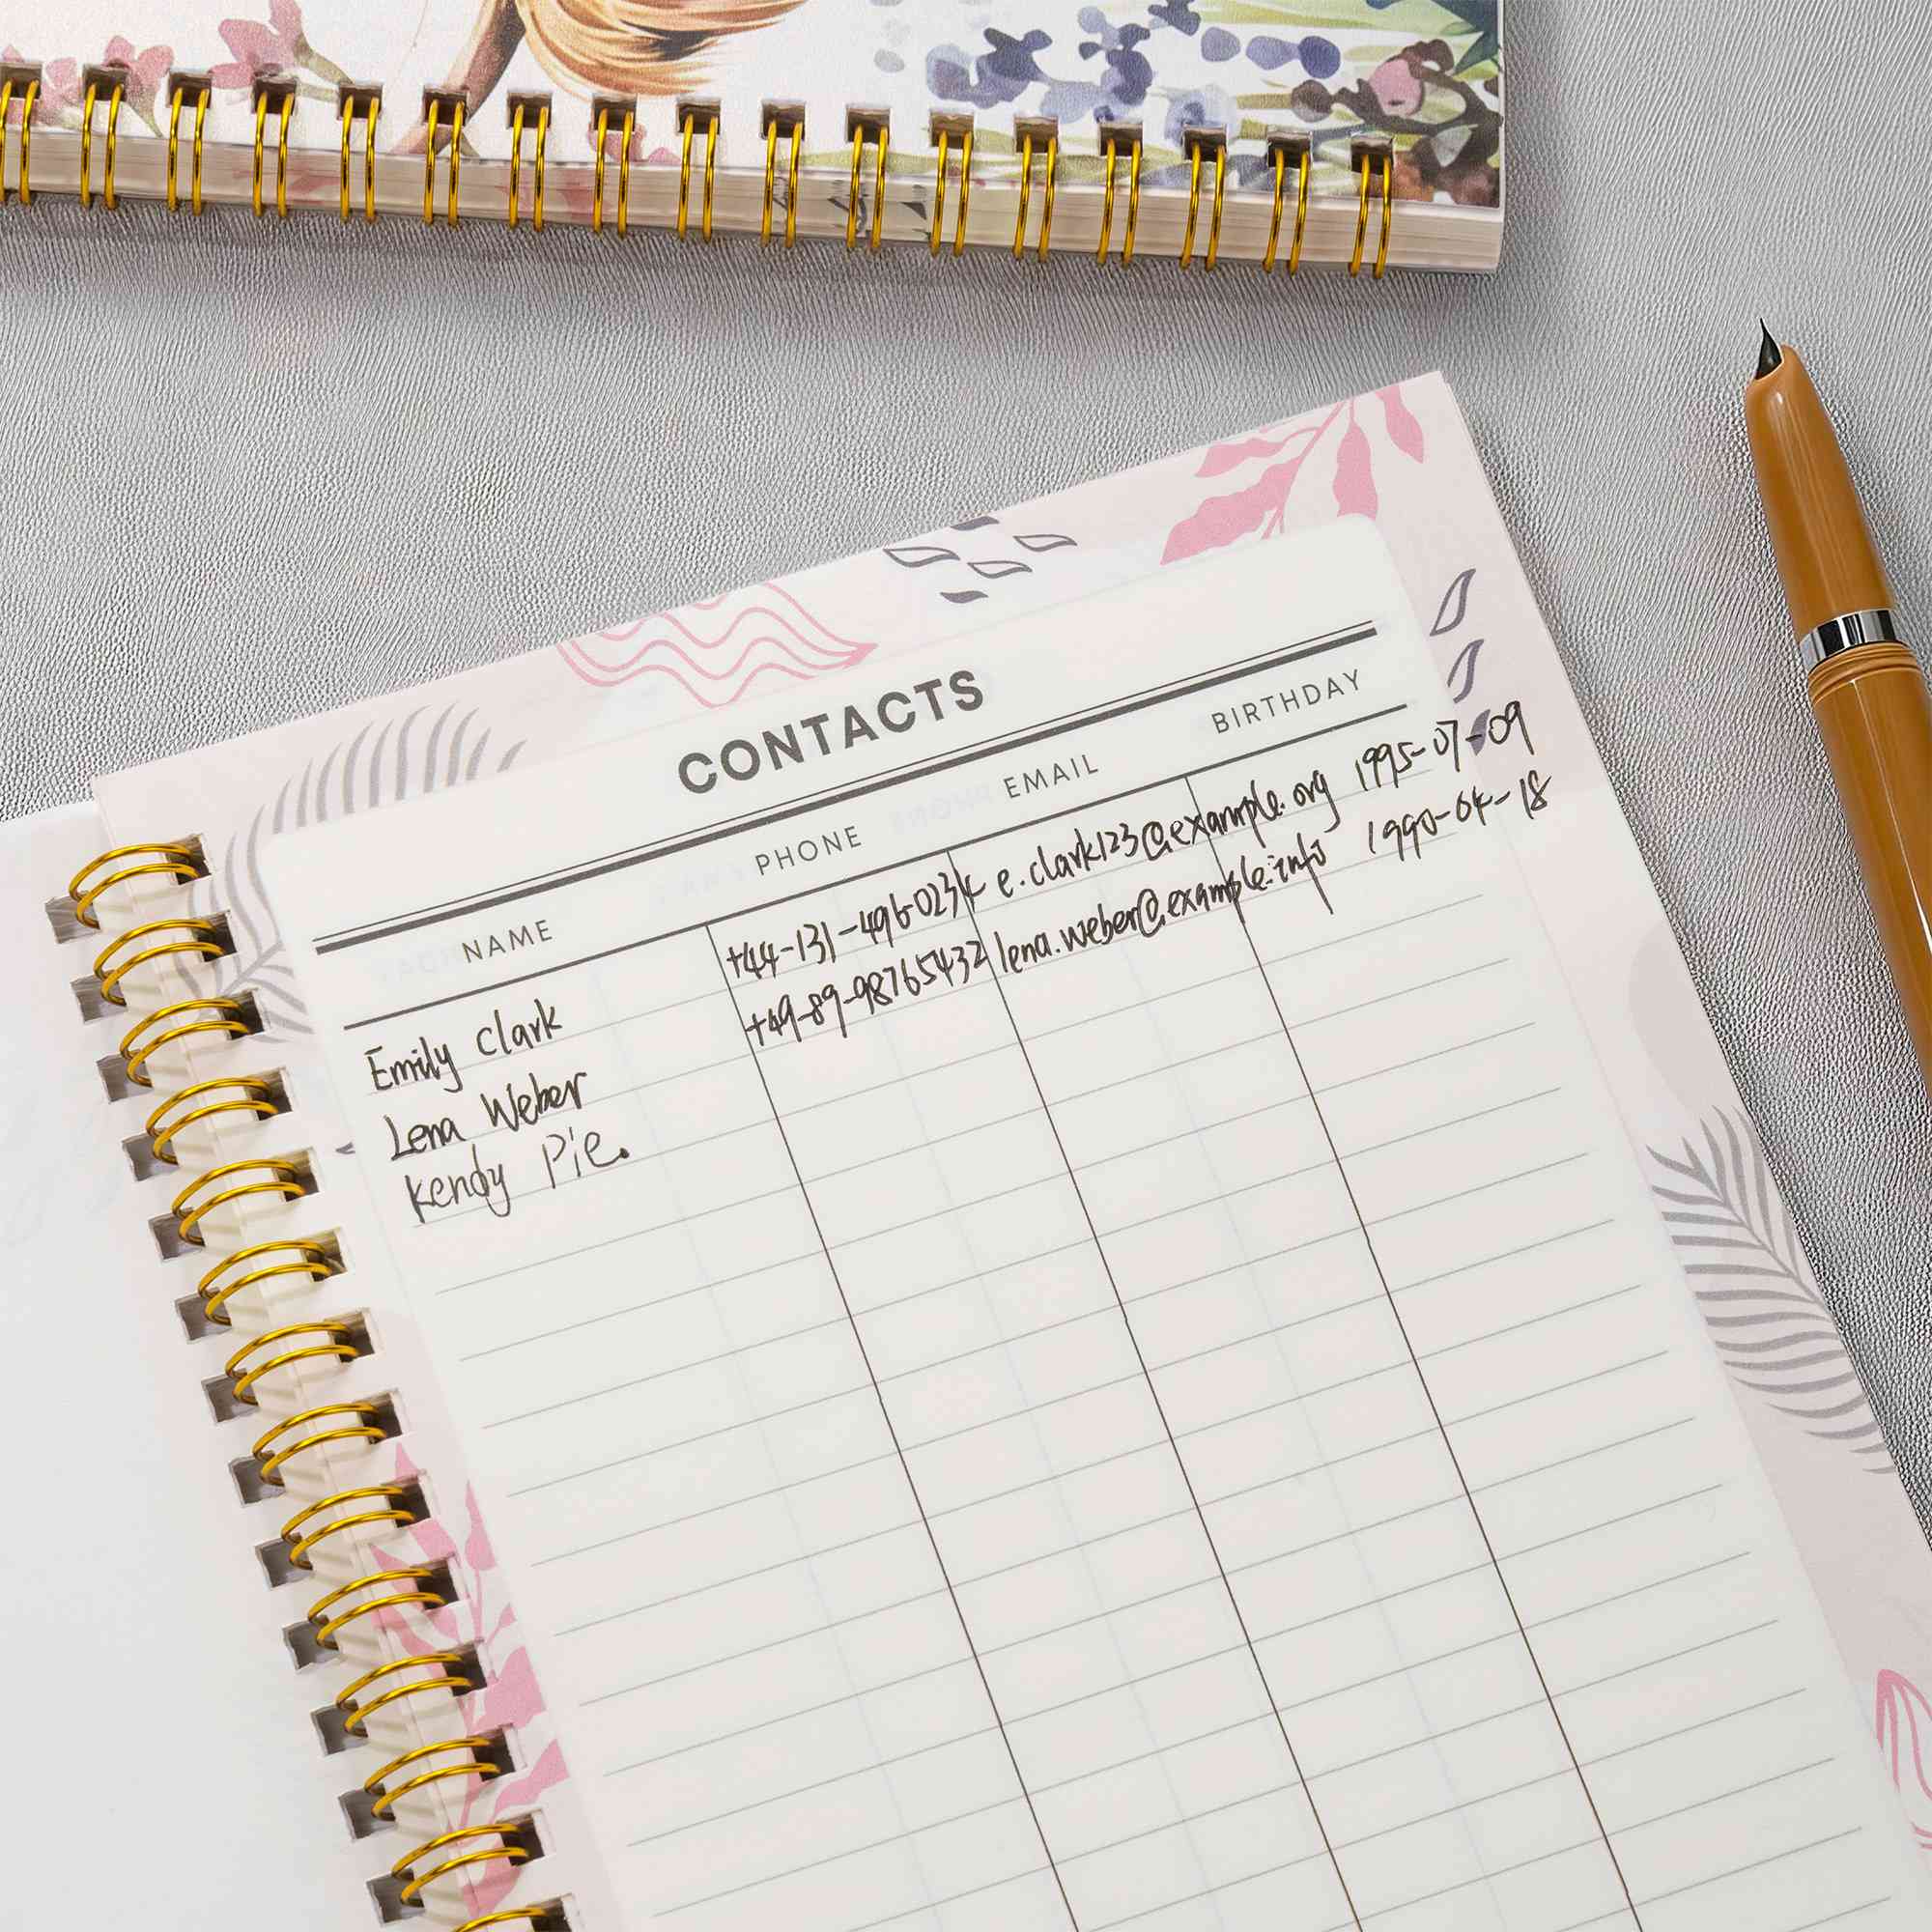 CONTACTS
NAME PHONE EMAIL BIRTHDAY
Emily Clark +44-131-496-0234 e.clark123@example.org 1995-07-09
Lena Weber +49-89-98765432 lena.weber@example.info 1990-04-18
Kendy Pie.